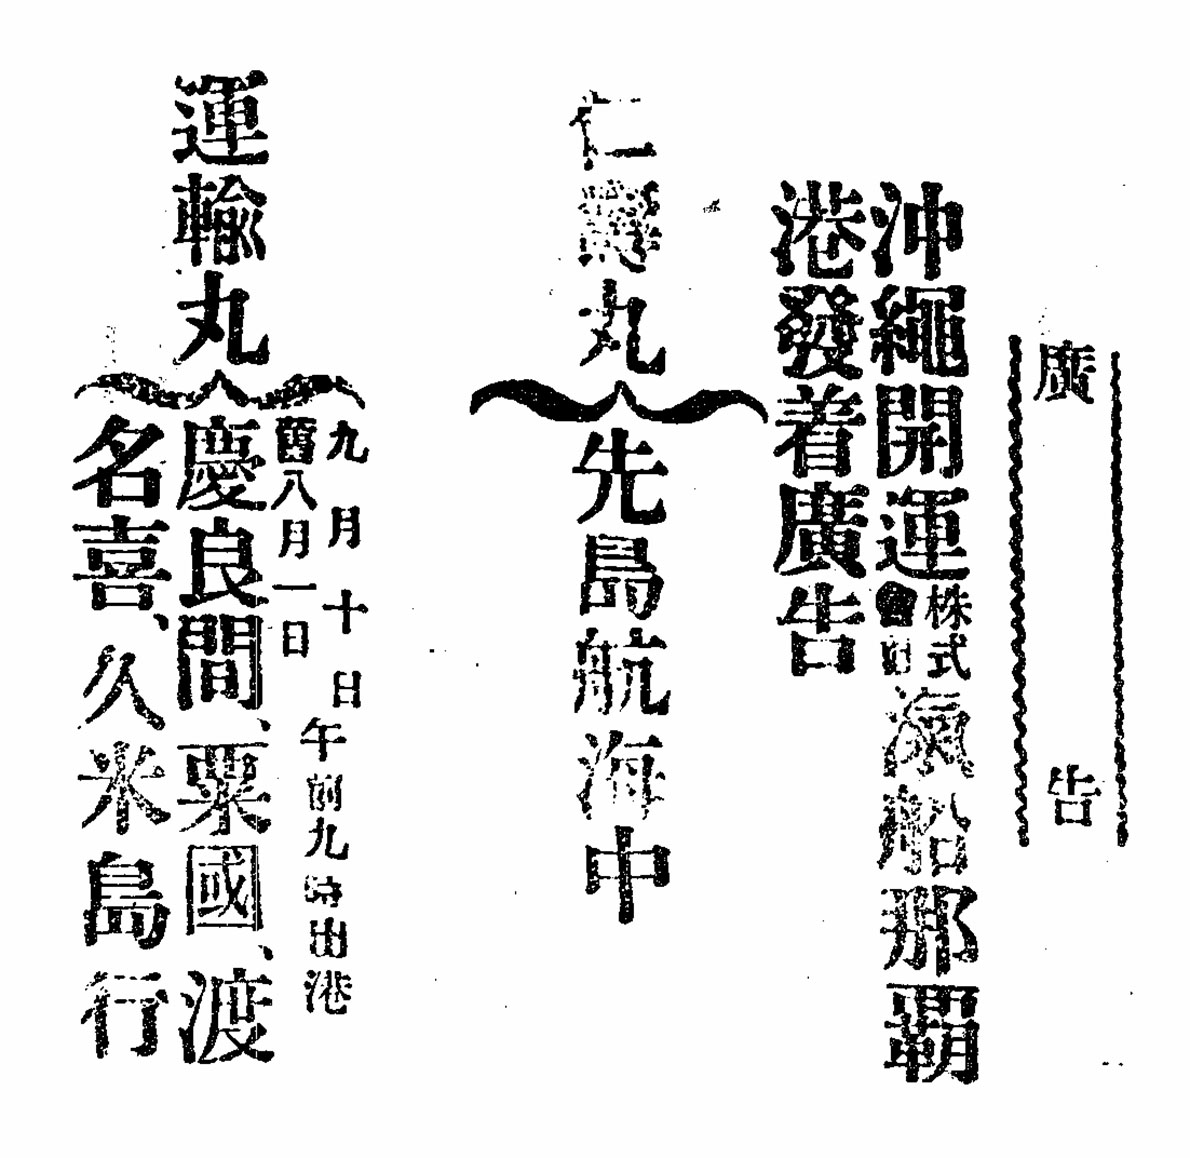 廣告
沖繩開運株式會社滊船那覇
港發着廣告
仁丸
先島航海中
運輸丸
九月十日
舊八月一日
午前九時出港
慶良間、粟國、渡
名喜、久米島行